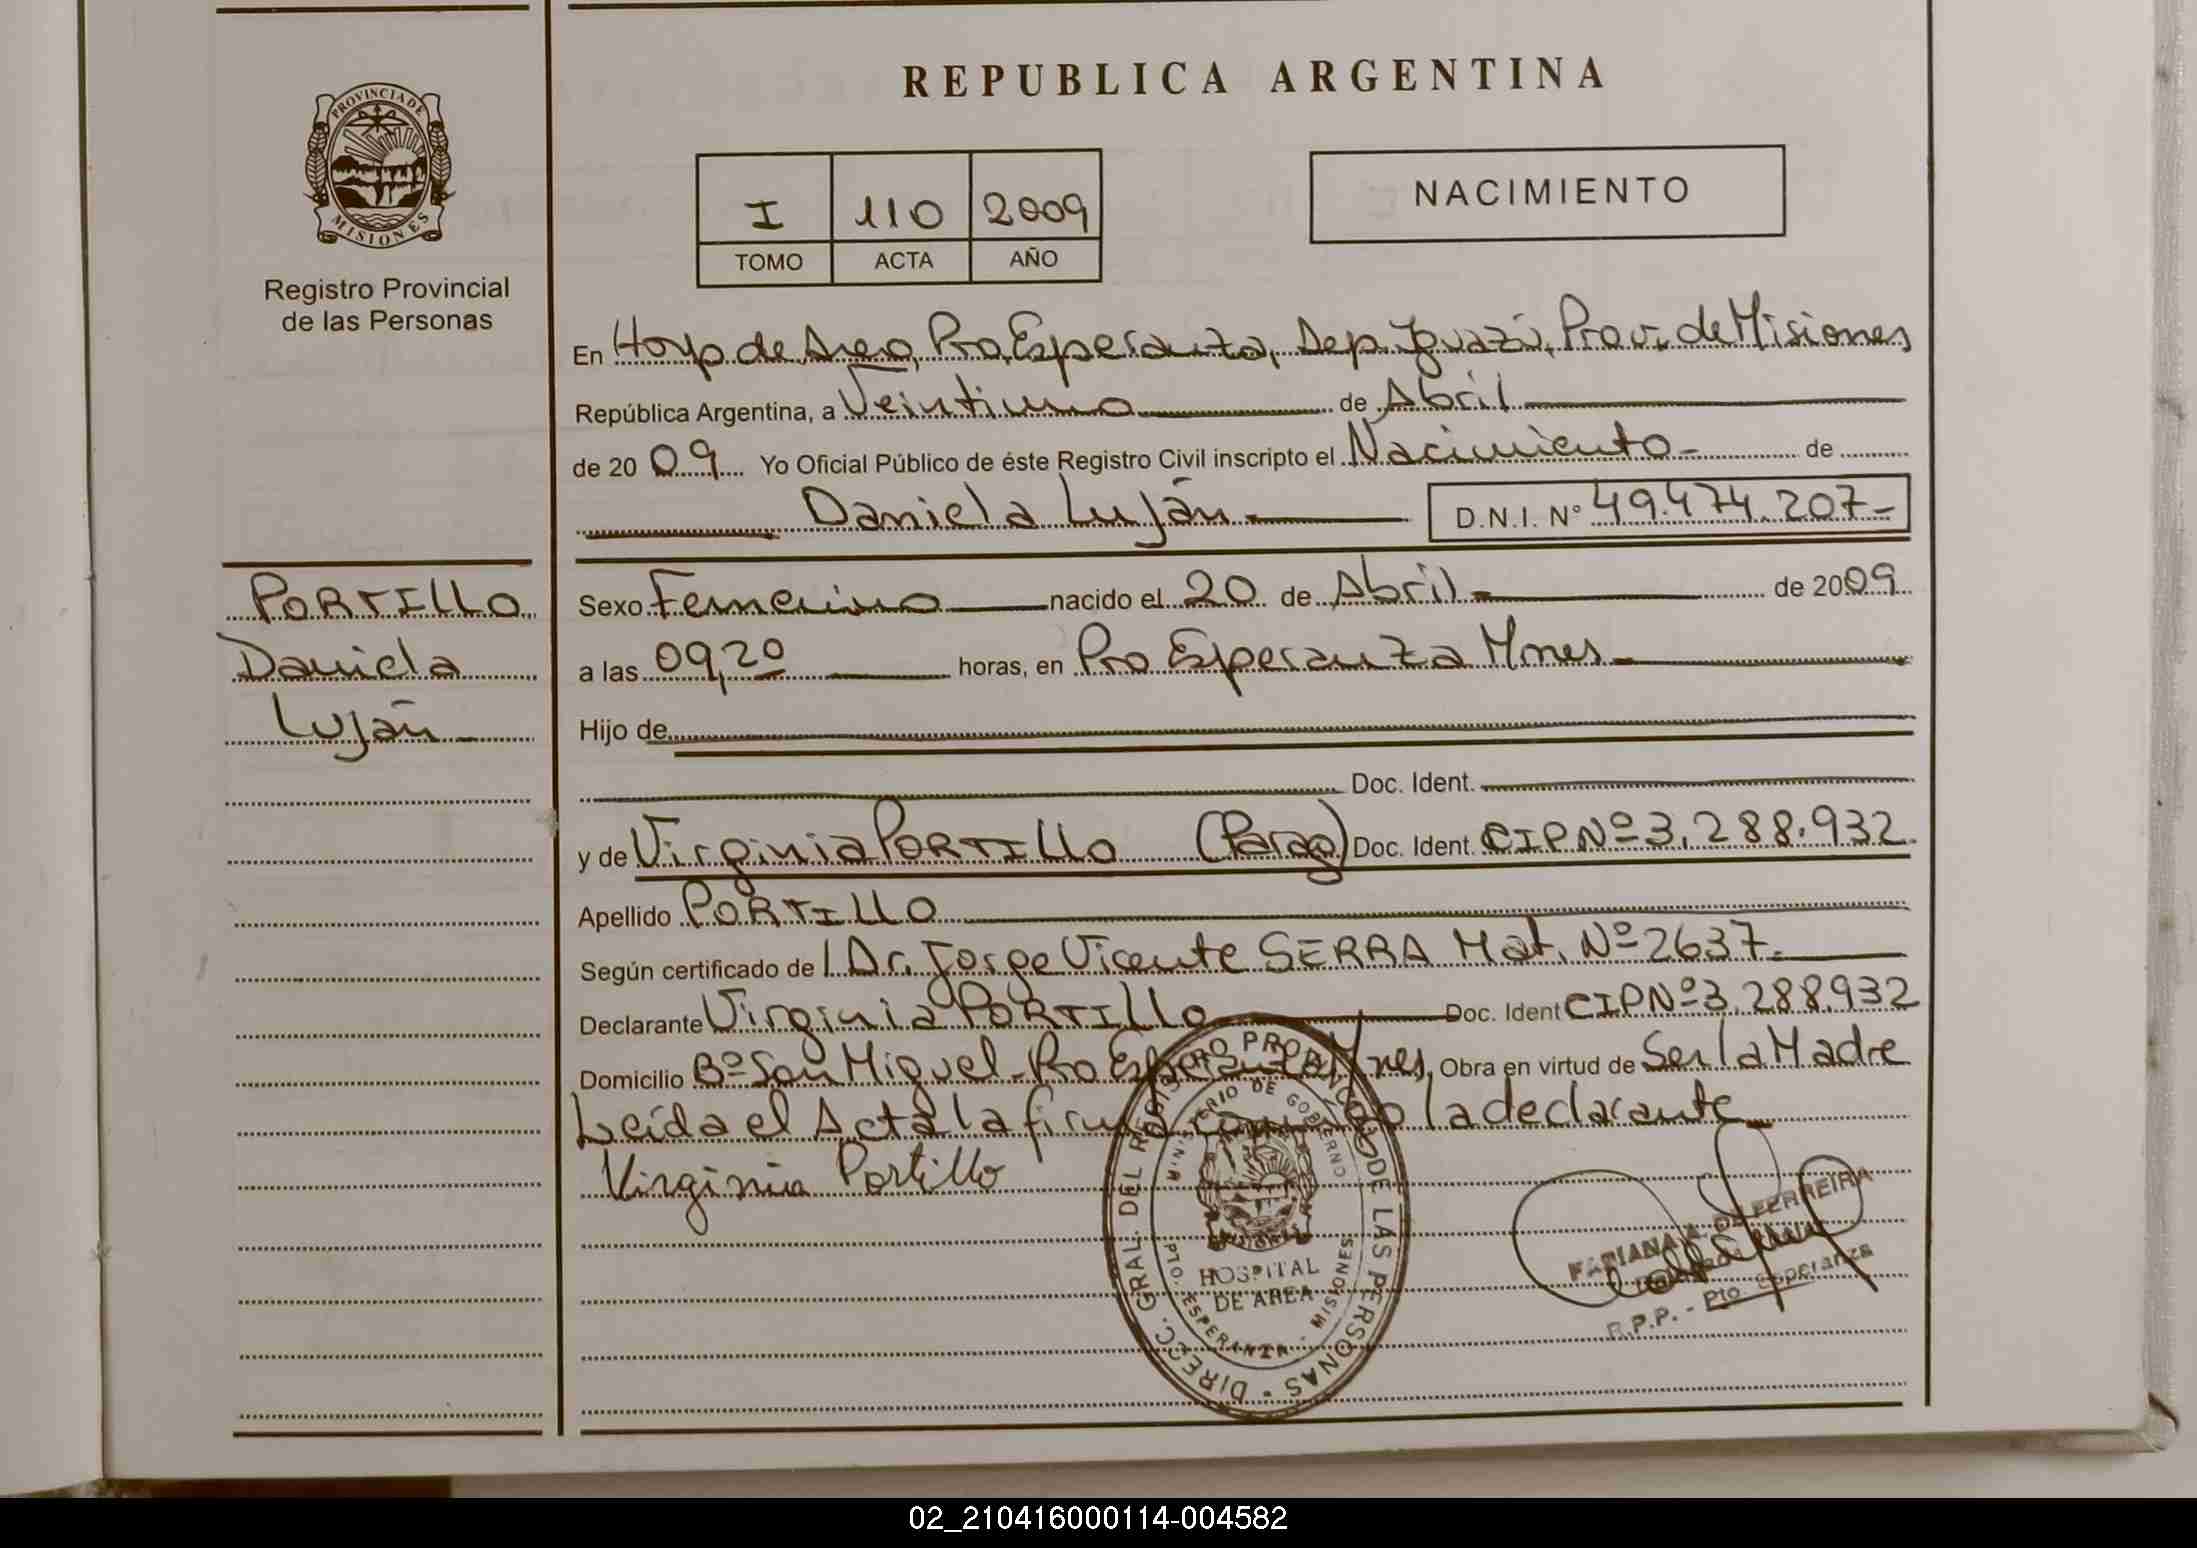 REPUBLICA ARGENTINA
PROVINCIA DE
MISIONES
Registro Provincial
de las Personas
I 110 2009
TOMO ACTA AÑO
NACIMIENTO
En Hosp de Area, Pto Esperanza, Dep. Iguazú, Prov. de Misiones
República Argentina, a Veintiuno de Abril
de 20 09 Yo Oficial Público de éste Registro Civil inscripto el Nacimiento - de
Daniela Luján D.N.I. Nº 49.474.207-
PORTILLO
Daniela
Luján -
Sexo Femenino nacido el 20 de Abril - de 2009
a las 09,20 horas, en Pto Esperanza Mnes -
Hijo de
Doc. Ident.
y de Virginia PORTILLO (Parag) Doc. Ident. CIP Nº 3.288.932
Apellido PORTILLO
Según certificado de / Dr. Jorge Vicente SERRA Mat. Nº 2637.
Declarante Virginia PORTILLO Doc. Ident CIP Nº 3.288.932
Domicilio Bº San Miguel - Pto Esperanza Mnes, Obra en virtud de Ser la Madre
Leída el Acta la firma conmigo la declarante
Virginia Portillo
DIRECC. GRAL. DEL REGISTRO PROVINCIAL DE LAS PERSONAS
MINISTERIO DE GOBIERNO
HOSPITAL
DE AREA
PTO. ESPERANZA - MISIONES
FABIANA A. DE FERREIRA
R.P.P. - Pto Esperanza
02_210416000114-004582